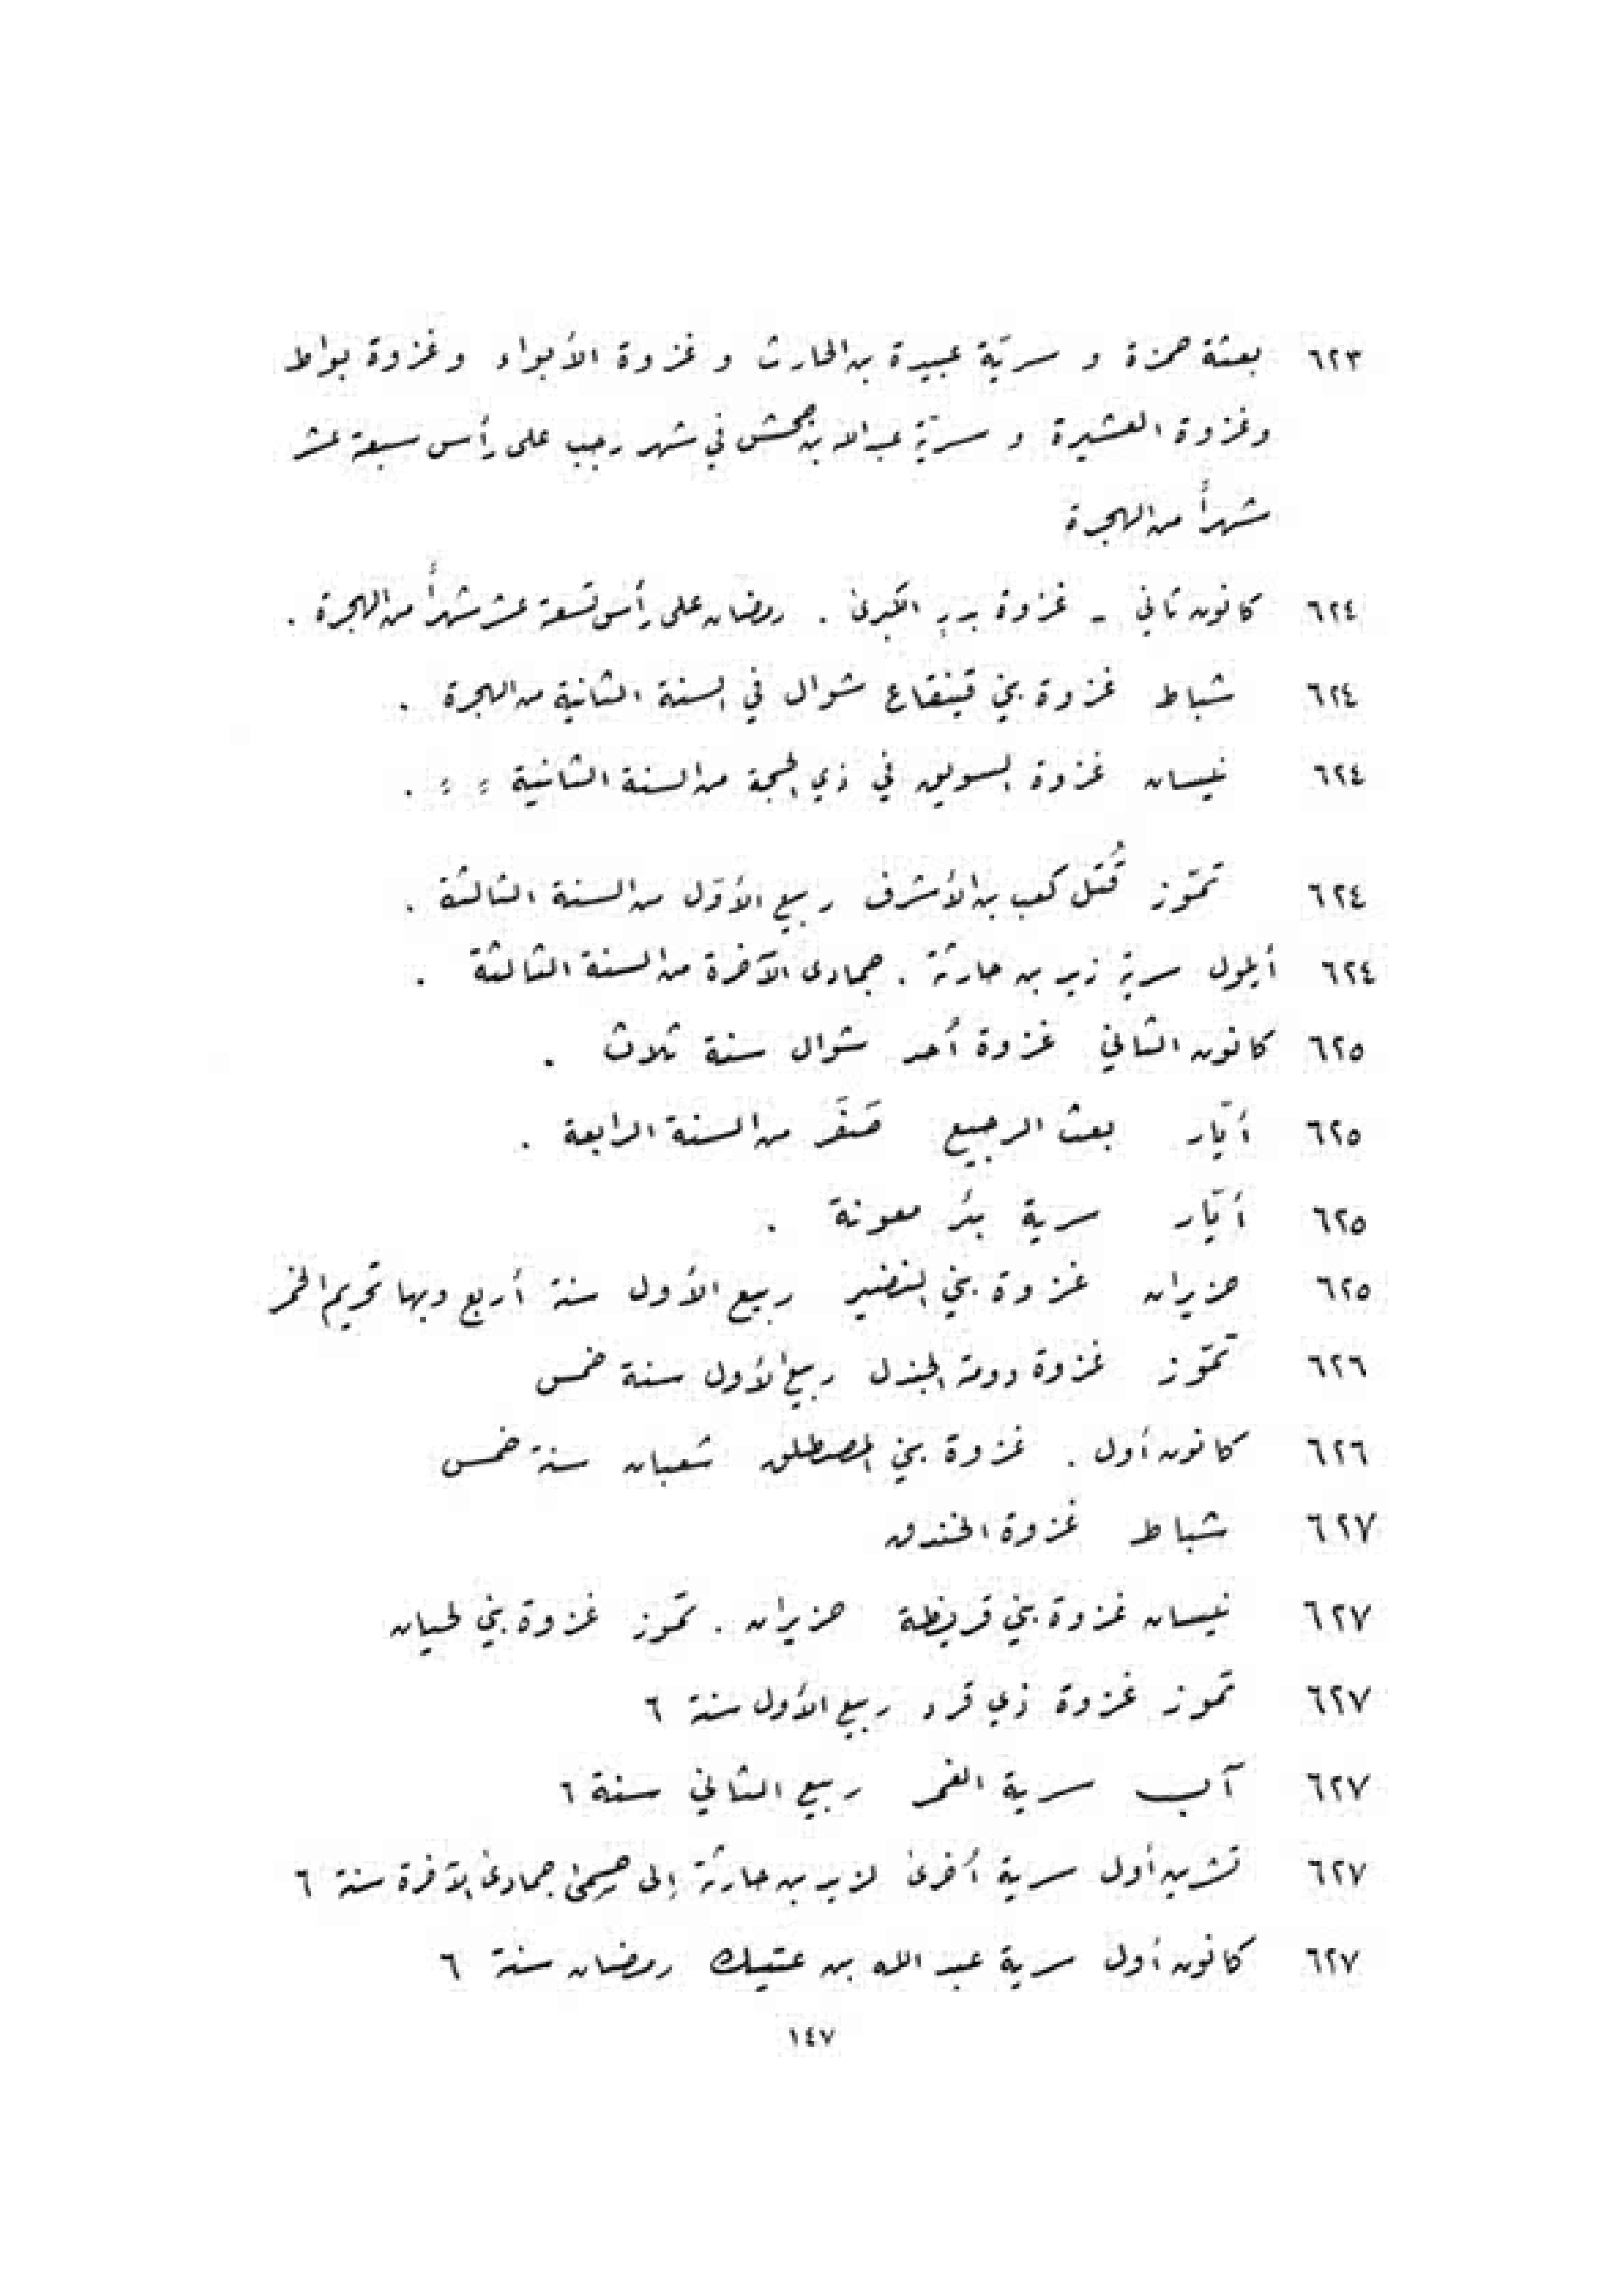 ٦٢٣ بعثة حمزة و سريّة عبيدة بن الحارث و غزوة الأبواء و غزوة بواط
وغزوة العشيرة و سريّة عبدالله بن جحش في شهر رجب على رأس سبعة عشر
شهراً من الهجرة
٦٢٤ كانون ثاني - غزوة بدرٍ الكبرىٰ . رمضان على رأس تسعة عشر شهراً من الهجرة .
٦٢٤ شباط غزوة بني قينقاع شوال في السنة الثانية من الهجرة .
٦٢٤ نيسان غزوة السويق في ذي الحجة من السنة الثانية = = .
٦٢٤ تمّوز قُتل كعب بن الأشرف ربيع الأوّل من السنة الثالثة .
٦٢٤ أيلول سرية زيد بن حارثة . جمادى الآخرة من السنة الثالثة .
٦٢٥ كانون الثاني غزوة أُحد شوال سنة ثلاث .
٦٢٥ أيّار بعث الرجيع صَفَر من السنة الرابعة .
٦٢٥ أيّار سرية بئر معونة .
٦٢٥ حزيران غزوة بني النضير ربيع الأول سنة أربع وبها تحريم الخمر
٦٢٦ تمّوز غزوة دومة الجندل ربيع الأول سنة خمس
٦٢٦ كانون أول . غزوة بني المصطلق شعبان سنة خمس
٦٢٧ شباط غزوة الخندق
٦٢٧ نيسان غزوة بني قريظة حزيران . تمّوز غزوة بني لحيان
٦٢٧ تموز غزوة ذي قرد ربيع الأول سنة ٦
٦٢٧ آب سرية الغمر ربيع الثاني سنة ٦
٦٢٧ تشرين أول سرية أُخرىٰ لزيد بن حارثة إلى حِسمىٰ جمادىٰ الآخرة سنة ٦
٦٢٧ كانون أول سرية عبد الله بن عتيك رمضان سنة ٦
١٤٧